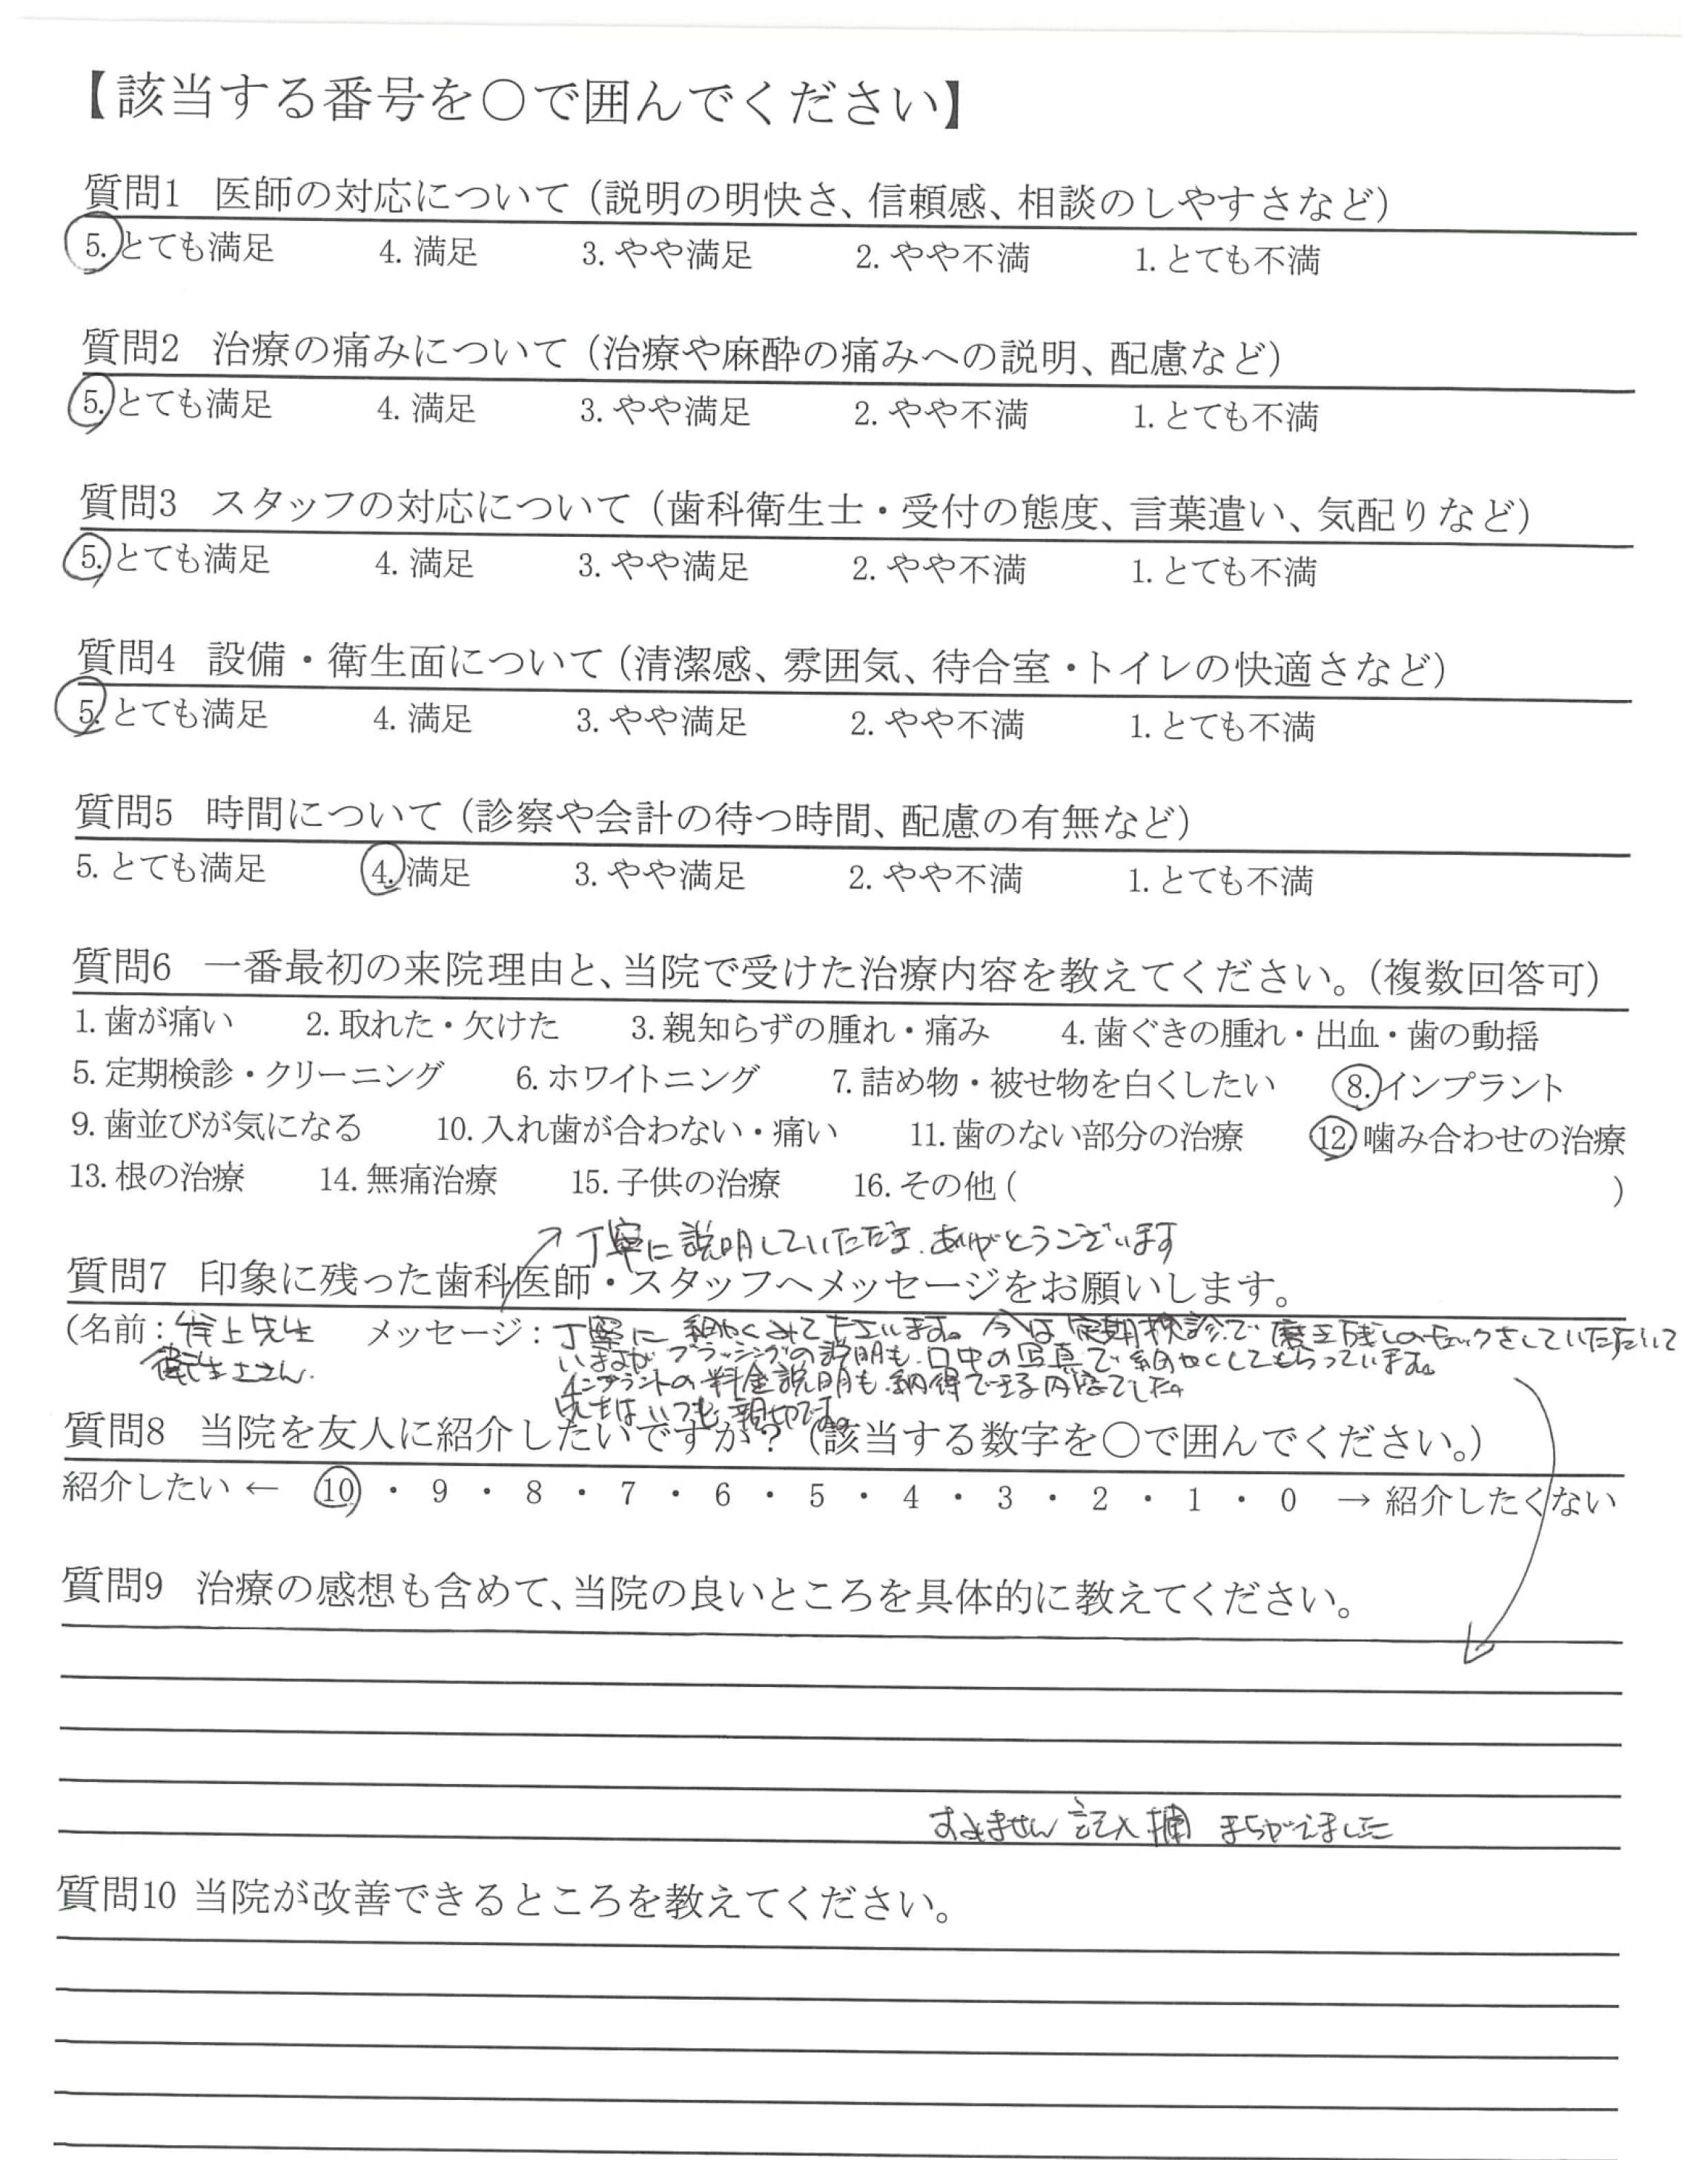 【該当する番号を○で囲んでください】
質問1 医師の対応について（説明の明快さ、信頼感、相談のしやすさなど）
5. とても満足 4. 満足 3. やや満足 2. やや不満 1. とても不満
質問2 治療の痛みについて（治療や麻酔の痛みへの説明、配慮など）
5. とても満足 4. 満足 3. やや満足 2. やや不満 1. とても不満
質問3 スタッフの対応について（歯科衛生士・受付の態度、言葉遣い、気配りなど）
5. とても満足 4. 満足 3. やや満足 2. やや不満 1. とても不満
質問4 設備・衛生面について（清潔感、雰囲気、待合室・トイレの快適さなど）
5. とても満足 4. 満足 3. やや満足 2. やや不満 1. とても不満
質問5 時間について（診察や会計の待つ時間、配慮の有無など）
5. とても満足 4. 満足 3. やや満足 2. やや不満 1. とても不満
質問6 一番最初の来院理由と、当院で受けた治療内容を教えてください。（複数回答可）
1. 歯が痛い 2. 取れた・欠けた 3. 親知らずの腫れ・痛み 4. 歯ぐきの腫れ・出血・歯の動揺
5. 定期検診・クリーニング 6. ホワイトニング 7. 詰め物・被せ物を白くしたい 8. インプラント
9. 歯並びが気になる 10. 入れ歯が合わない・痛い 11. 歯のない部分の治療 12. 噛み合わせの治療
13. 根の治療 14. 無痛治療 15. 子供の治療 16. その他 ( )
丁寧に説明していただき、ありがとうございます
質問7 印象に残った歯科医師・スタッフへメッセージをお願いします。
（名前： 先生 メッセージ：丁寧に 細かくみて下さいます。今は定期検診で磨き残しのチェックをしていただいて
衛生士さん いますが ブラッシングの説明も 口中の写真で細かくしてもらっています。
インプラントの料金説明も 納得できる内容でした。
先生はいつも親切です。
質問8 当院を友人に紹介したいですか？（該当する数字を○で囲んでください。）
紹介したい ← 10 ・ 9 ・ 8 ・ 7 ・ 6 ・ 5 ・ 4 ・ 3 ・ 2 ・ 1 ・ 0 → 紹介したくない
質問9 治療の感想も含めて、当院の良いところを具体的に教えてください。
すみません 記入欄 まちがえました
質問10 当院が改善できるところを教えてください。